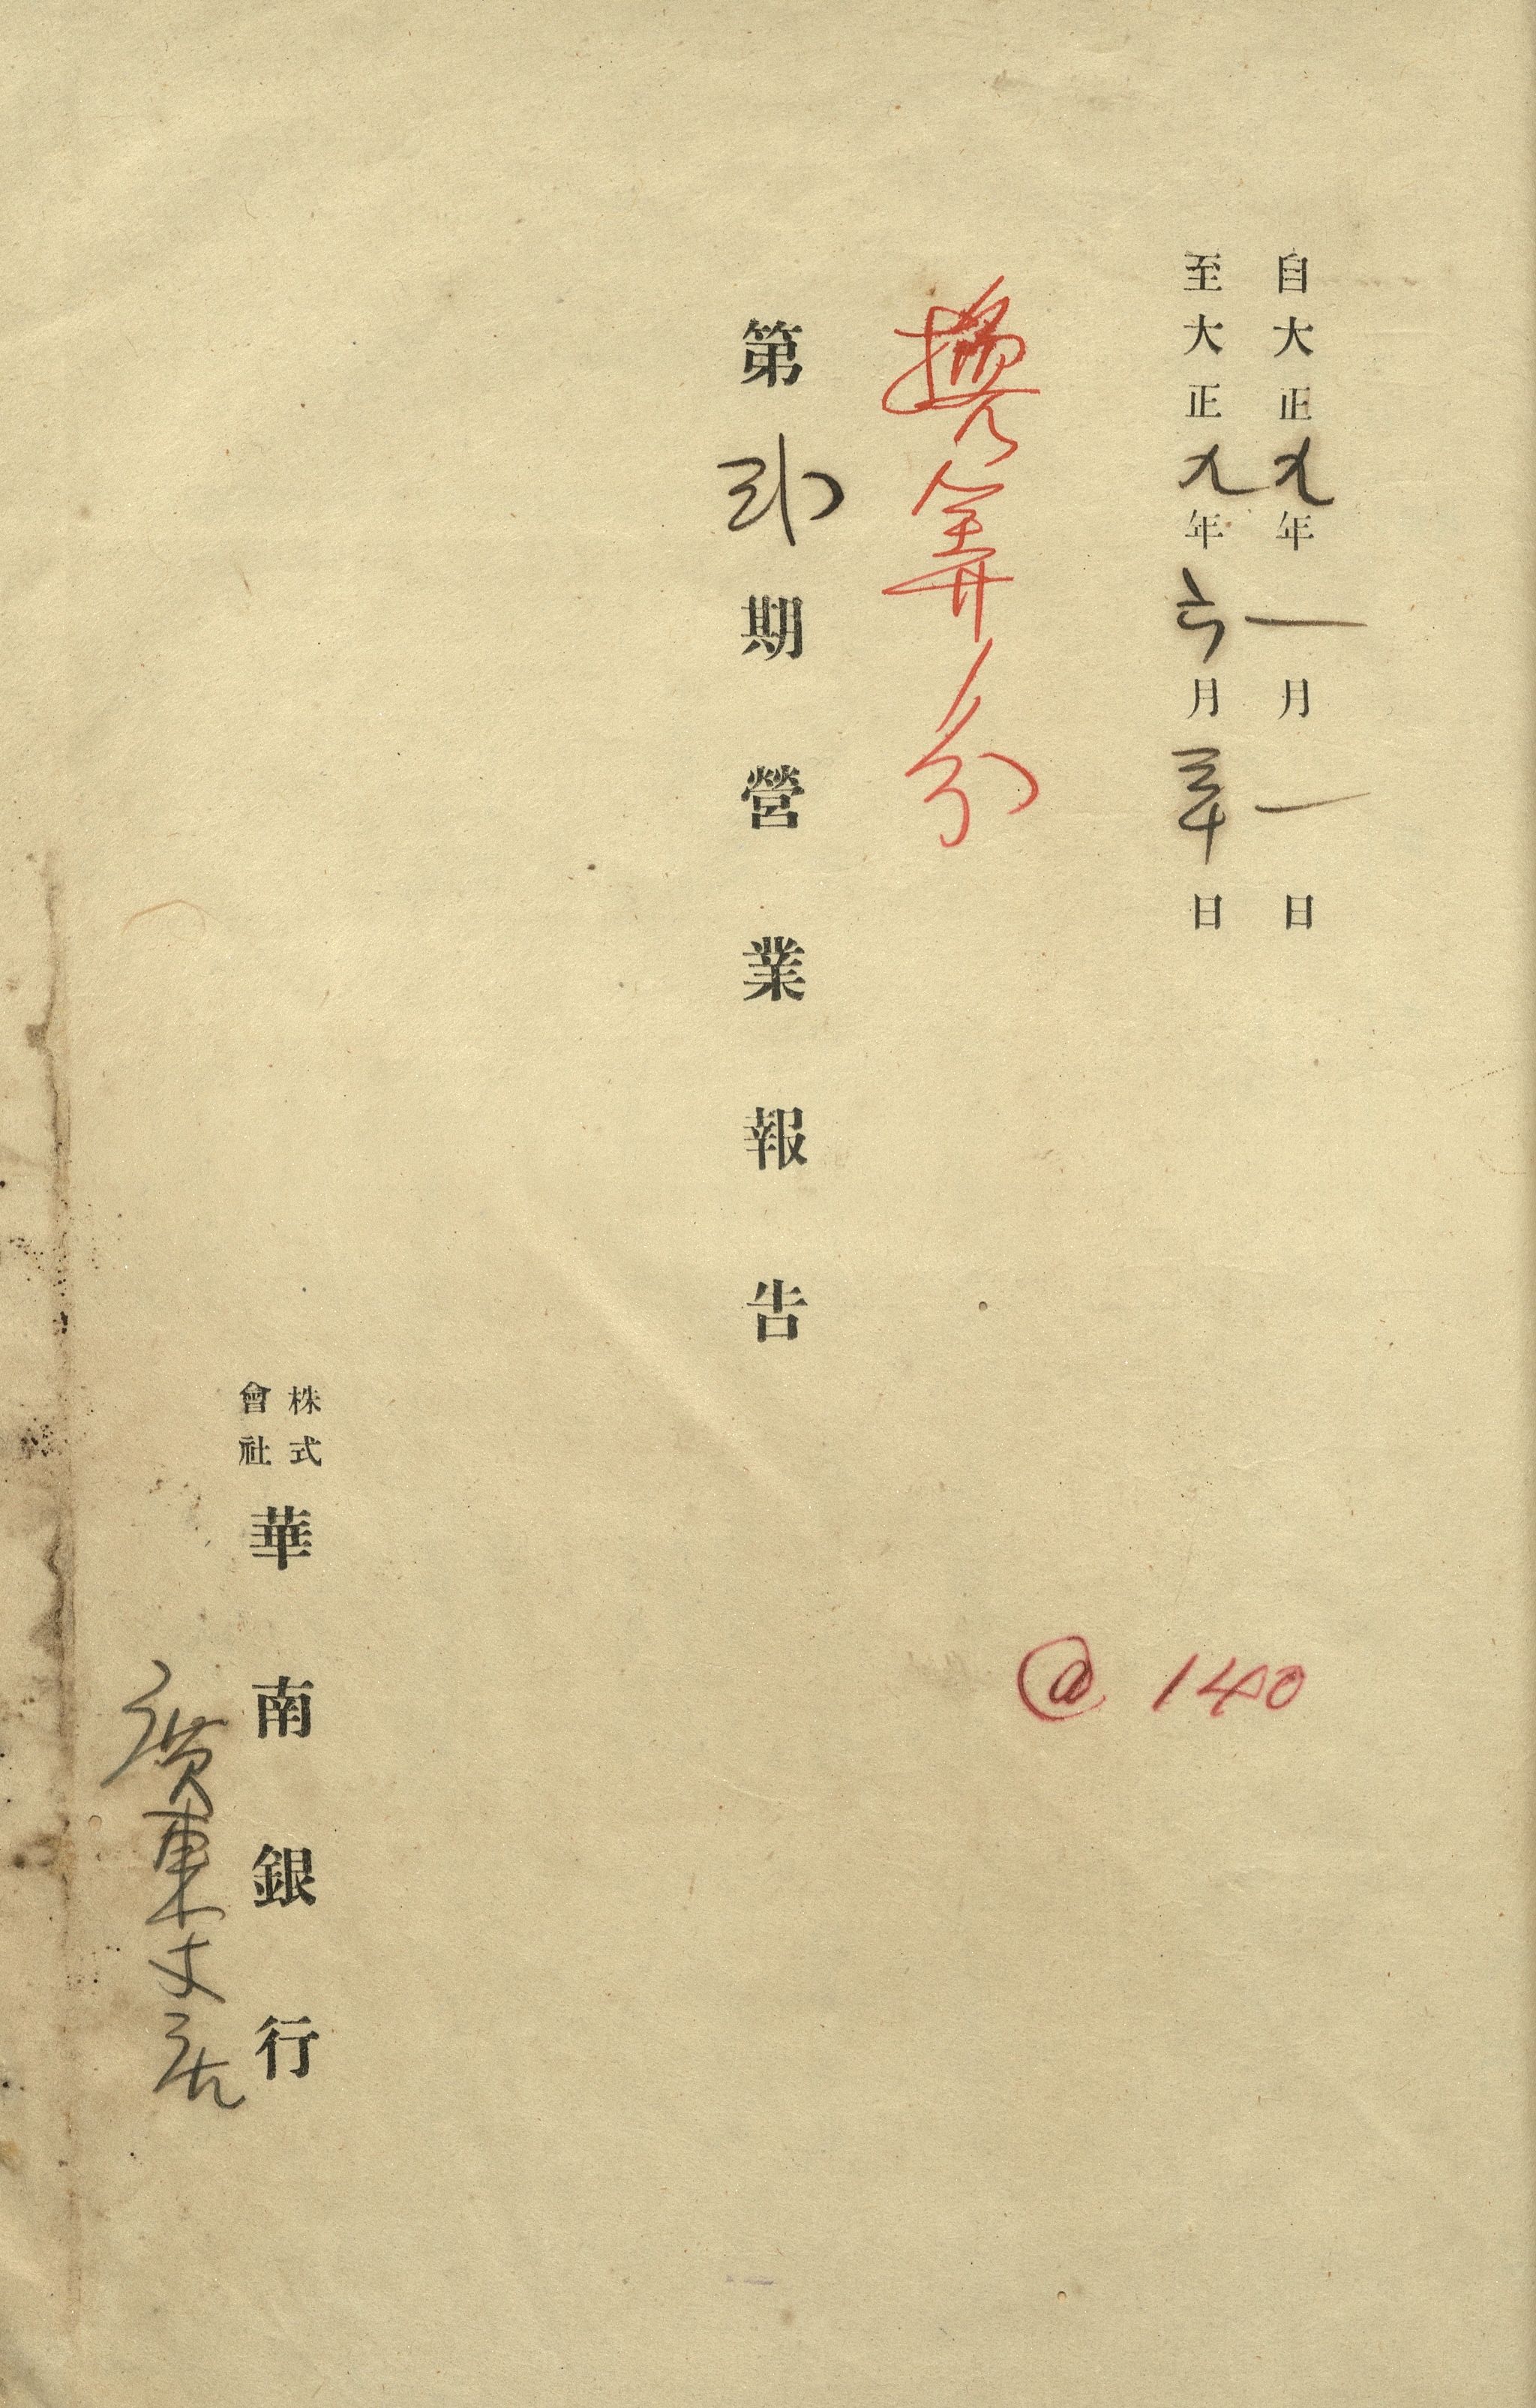 自大正九年一月一日
至大正九年六月三十日
換算分
第期營業報告
@ 140
株式會社華南銀行
廣東支店